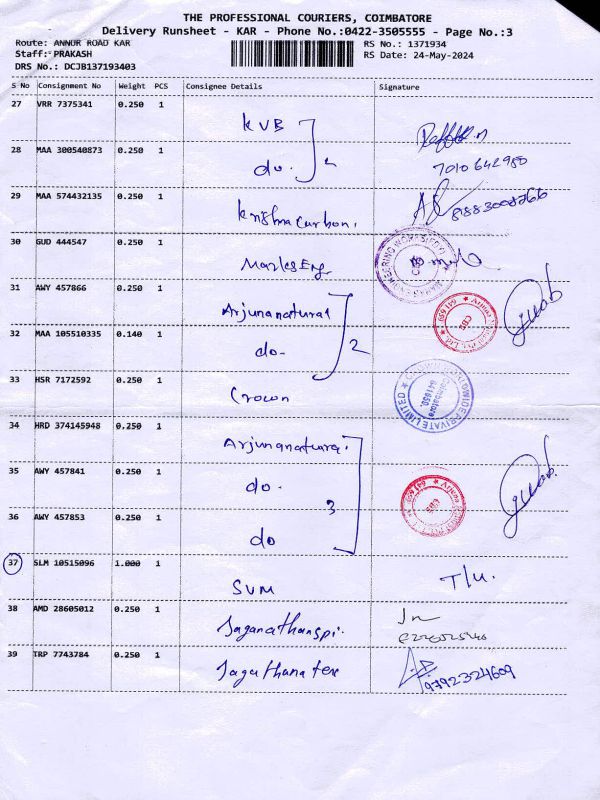 THE PROFESSIONAL COURIERS, COIMBATORE
Delivery Runsheet - KAR - Phone No.:0422-3505555 - Page No.:3
Route: ANNUR ROAD KAR
RS No.: 1371934
Staff: PRAKASH
RS Date: 24-May-2024
DRS No.: DCJB137193403
S No Consignment No Weight PCS Consignee Details Signature
27 VRR 7375341 0.250 1
KVB
28 MAA 300540873 0.250 1
do. 2
7010642980
29 MAA 574432135 0.250 1
Krishna Carbon.
30 GUD 444547 0.250 1
Marks Eng
31 AWY 457866 0.250 1
Arjuna natural
32 MAA 105510335 0.140 1
do- 2
33 HSR 7172592 0.250 1
Crown
34 HRD 374145948 0.250 1
Arjuna natural.
35 AWY 457841 0.250 1
do.
3
36 AWY 457853 0.250 1
do
37 SLM 10515096 1.000 1
SVM T/U.
38 AMD 28605012 0.250 1
Jaganathanspi.
39 TRP 7743784 0.250 1
Jagathana tex
9792324609